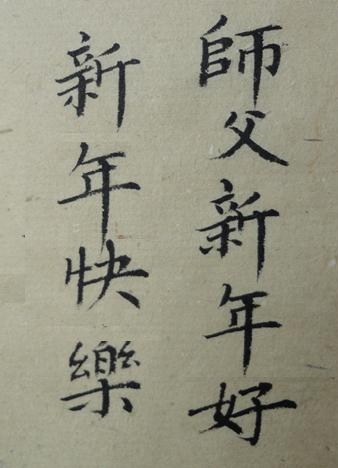 師父新年好
新年快樂